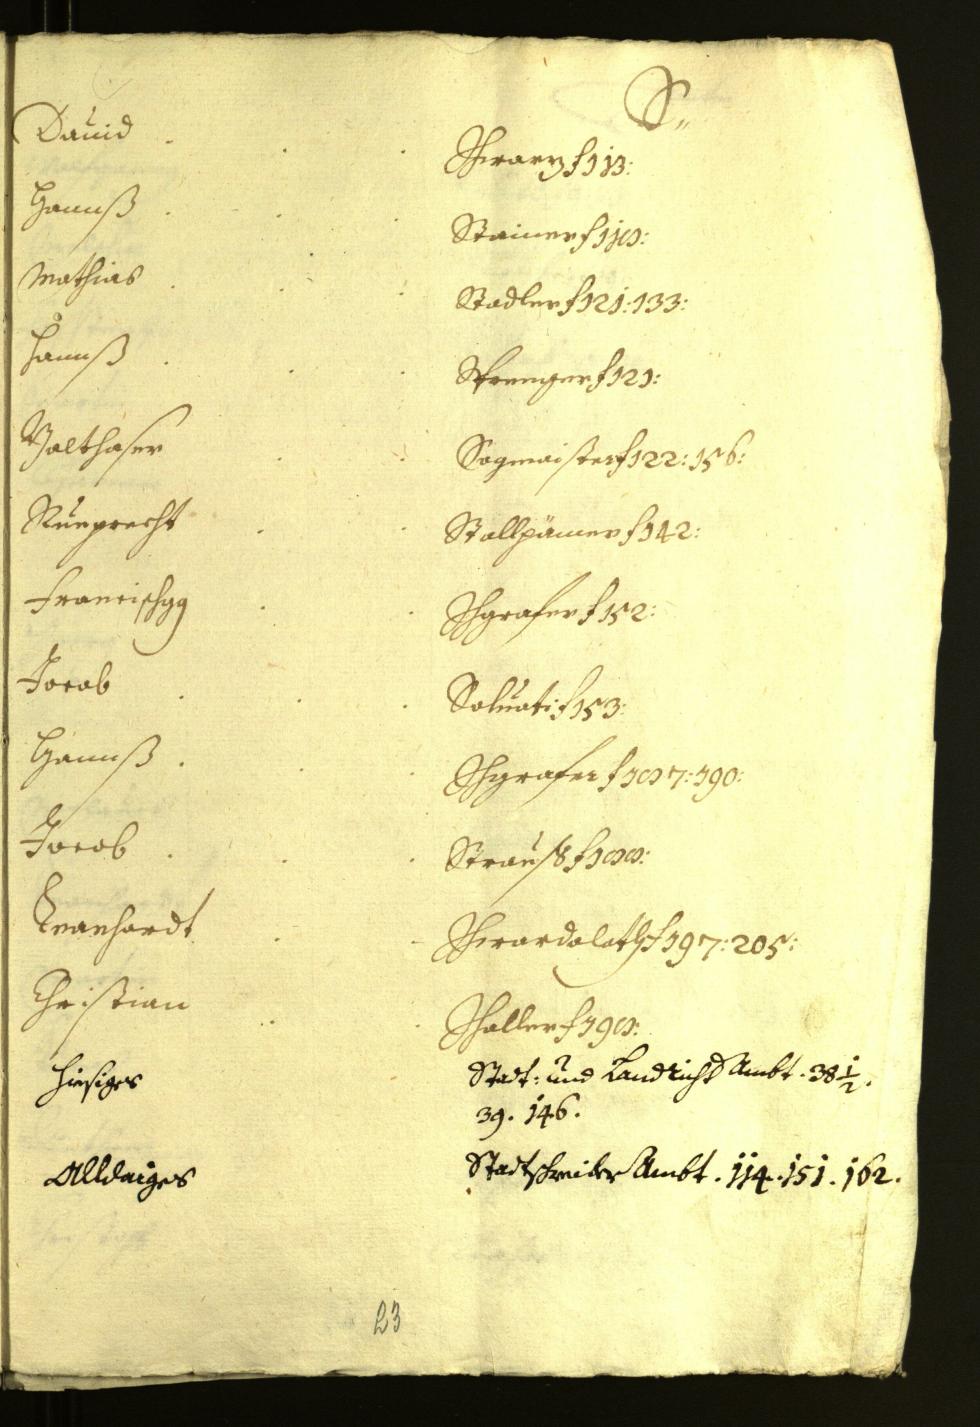 S„
Dauid . . . Schwarz f 113:
Hannß . . . Stainer f 118:
Mathias . . . Stadler f 121: 133:
Hannß . . . Sprenger f 121:
Balthaser . . . Sagmaister f 122: 156:
Rueprecht . . . Stallpämer f 142:
Francischgg . . . Schgrafer f 152:
Jacob . . . Saluati f 153:
Hannß . . . Schgrafer f 187: 190:
Jacob . . . Strauß f 188:
Leonhardt . . . f 197: 205:
Christian . . . Schaller f 198:
hiesiges Stadt: und Landtricht Ambt . 38 1/2.
39. 146.
Alldaiges Stadtschreiber Ambt . 114. 151. 162.
23